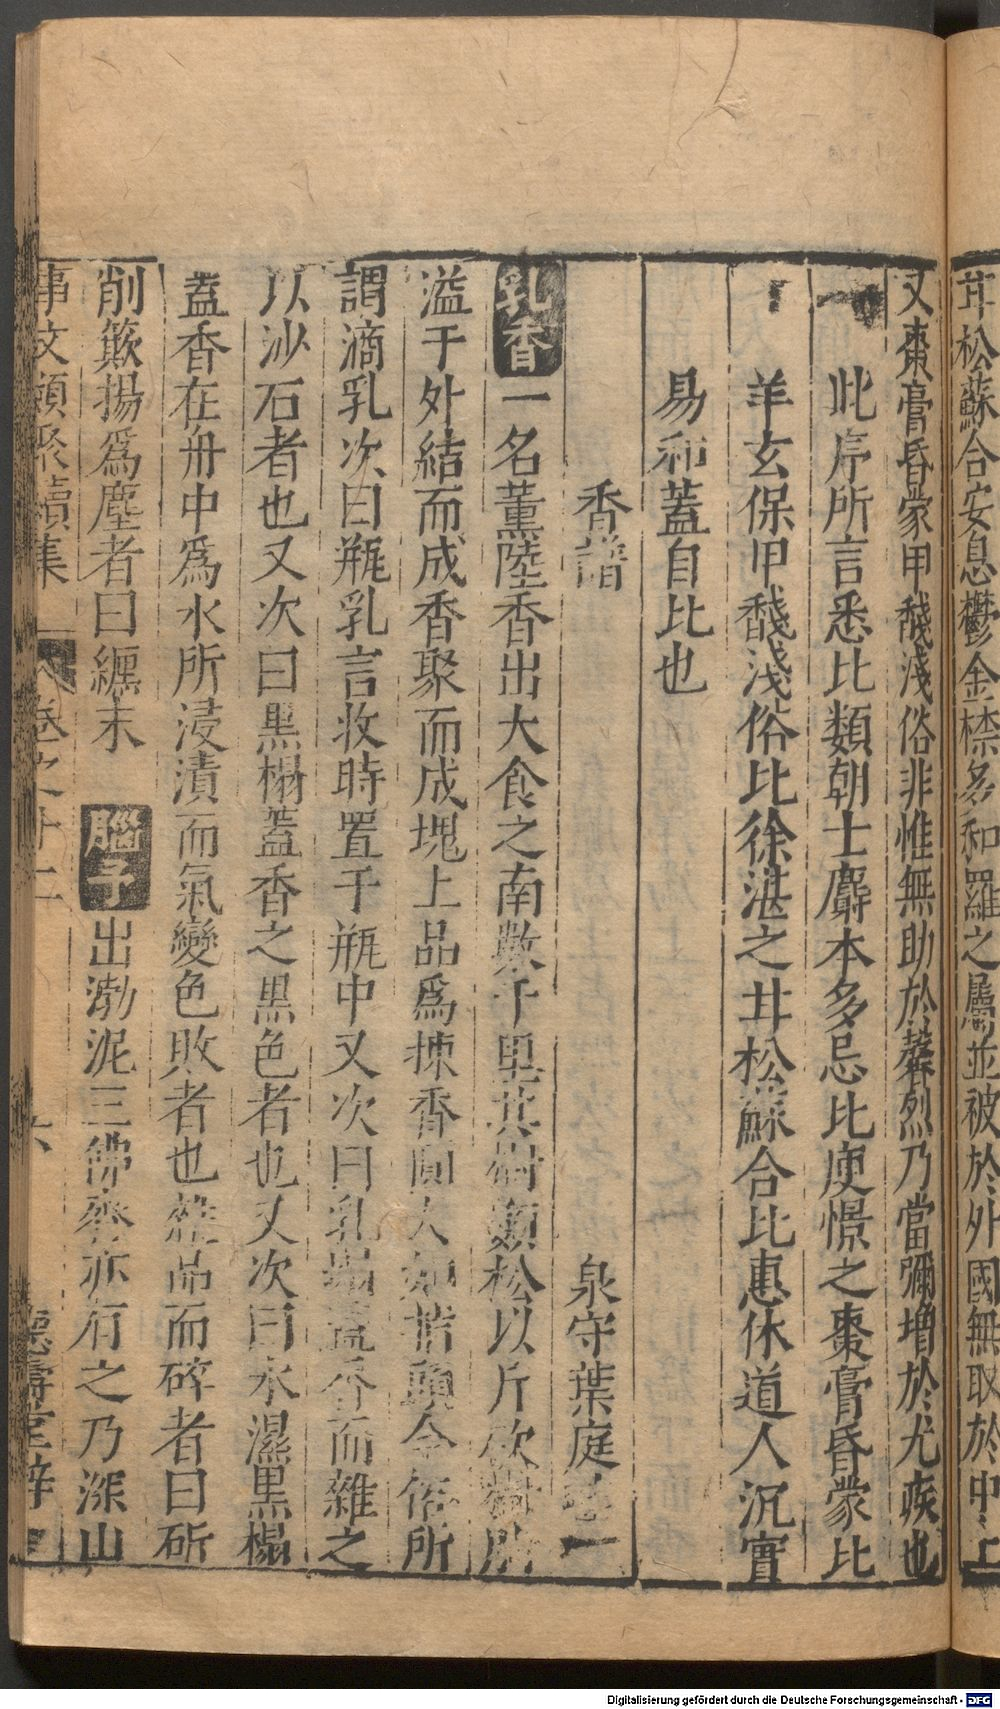 苷松蘇合安息鬱金㮈多和羅之屬並被於外國無取於中土
又棗膏昏蒙甲馢淺俗非惟無助於馨烈乃當彌增於尤疾也
此序所言悉比類朝士麝本多忌比庾憬之棗膏昏蒙比
羊玄保甲馢淺俗比徐湛之苷松蘇合比惠休道人沉實
易和蓋自比也
香譜 泉守葉庭珪
乳香一名薰陸香出大食之南數千里其樹類松以斤斫樹脂
溢于外結而成香聚而成塊上品爲揀香圓大如指頭今俗所
謂滴乳次曰瓶乳言收時置于瓶中又次曰乳榻蓋香而雜之
以沙石者也又次曰黑榻蓋香之黑色者也又次曰水濕黑榻
蓋香在舟中爲水所浸漬而氣變色敗者也雜品而碎者曰斫
削簸揚爲塵者曰纏末 腦子出渤泥三佛齊亦有之乃深山
事文類聚續集 卷之十二 六 德壽堂梓
Digitalisierung gefördert durch die Deutsche Forschungsgemeinschaft - DFG